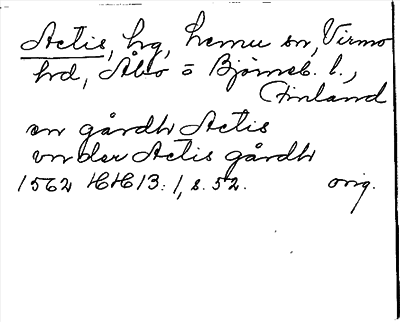 Actis, hg, Lemu sn, Virmo
hd, Åbo o Bjørneb. l.,
Finland
en gårdh Actis
vnder Actis gårdh
1562 HH 13: 1, s. 52. orig.